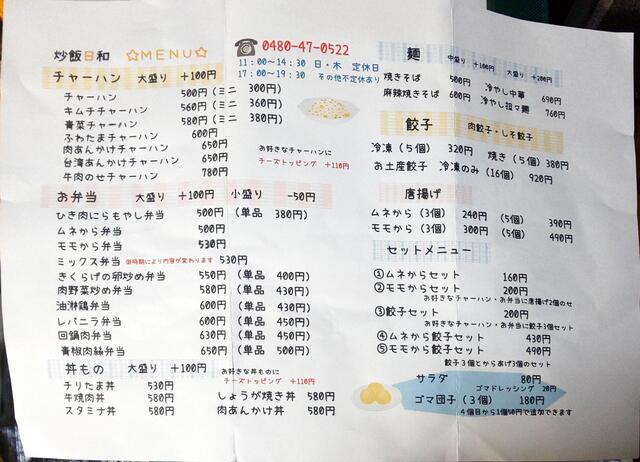 炒飯日和 ☆MENU☆
☎ 0480-47-0522
11:00〜14:30 日・木 定休日
17:00〜19:30 その他不定休あり
チャーハン 大盛り +100円
チャーハン 500円(ミニ 300円)
キムチチャーハン 560円(ミニ 360円)
青菜チャーハン 580円(ミニ 380円)
ふわたまチャーハン 600円
肉あんかけチャーハン 650円
台湾あんかけチャーハン 650円
牛肉のせチャーハン 780円
お好きなチャーハンに
チーズトッピング +110円
お弁当 大盛り +100円 小盛り -50円
ひき肉にらもやし弁当 500円 (単品 380円)
ムネから弁当 500円
モモから弁当 530円
ミックス弁当 ※時期により内容が変わります 530円
きくらげの卵炒め弁当 550円 (単品 400円)
肉野菜炒め弁当 580円 (単品 430円)
油淋鶏弁当 600円 (単品 430円)
レバニラ弁当 600円 (単品 450円)
回鍋肉弁当 630円 (単品 450円)
青椒肉絲弁当 650円 (単品 500円)
丼もの 大盛り +100円
チリたま丼 530円
牛焼肉丼 580円
スタミナ丼 580円
お好きな丼ものに
チーズトッピング +110円
しょうが焼き丼 580円
肉あんかけ丼 580円
麺 中盛り +100円 大盛り +200円
焼きそば 500円 冷やし中華 690円
麻辣焼きそば 600円 冷やし担々麺 760円
餃子 肉餃子・しそ餃子
冷凍(5個) 320円 焼き(5個) 380円
お土産餃子 冷凍のみ(16個) 920円
唐揚げ
ムネから(3個) 240円 (5個) 390円
モモから(3個) 300円 (5個) 490円
セットメニュー
①ムネからセット 160円
②モモからセット 200円
お好きなチャーハン・お弁当に唐揚げ2個のせ
③餃子セット 200円
お好きなチャーハン・お弁当に餃子3個セット
④ムネから餃子セット 430円
⑤モモから餃子セット 490円
餃子3個とからあげ3個のセット
サラダ 80円
ゴマドレッシング 20円
ゴマ団子(3個) 180円
4個目から1個60円で追加できます